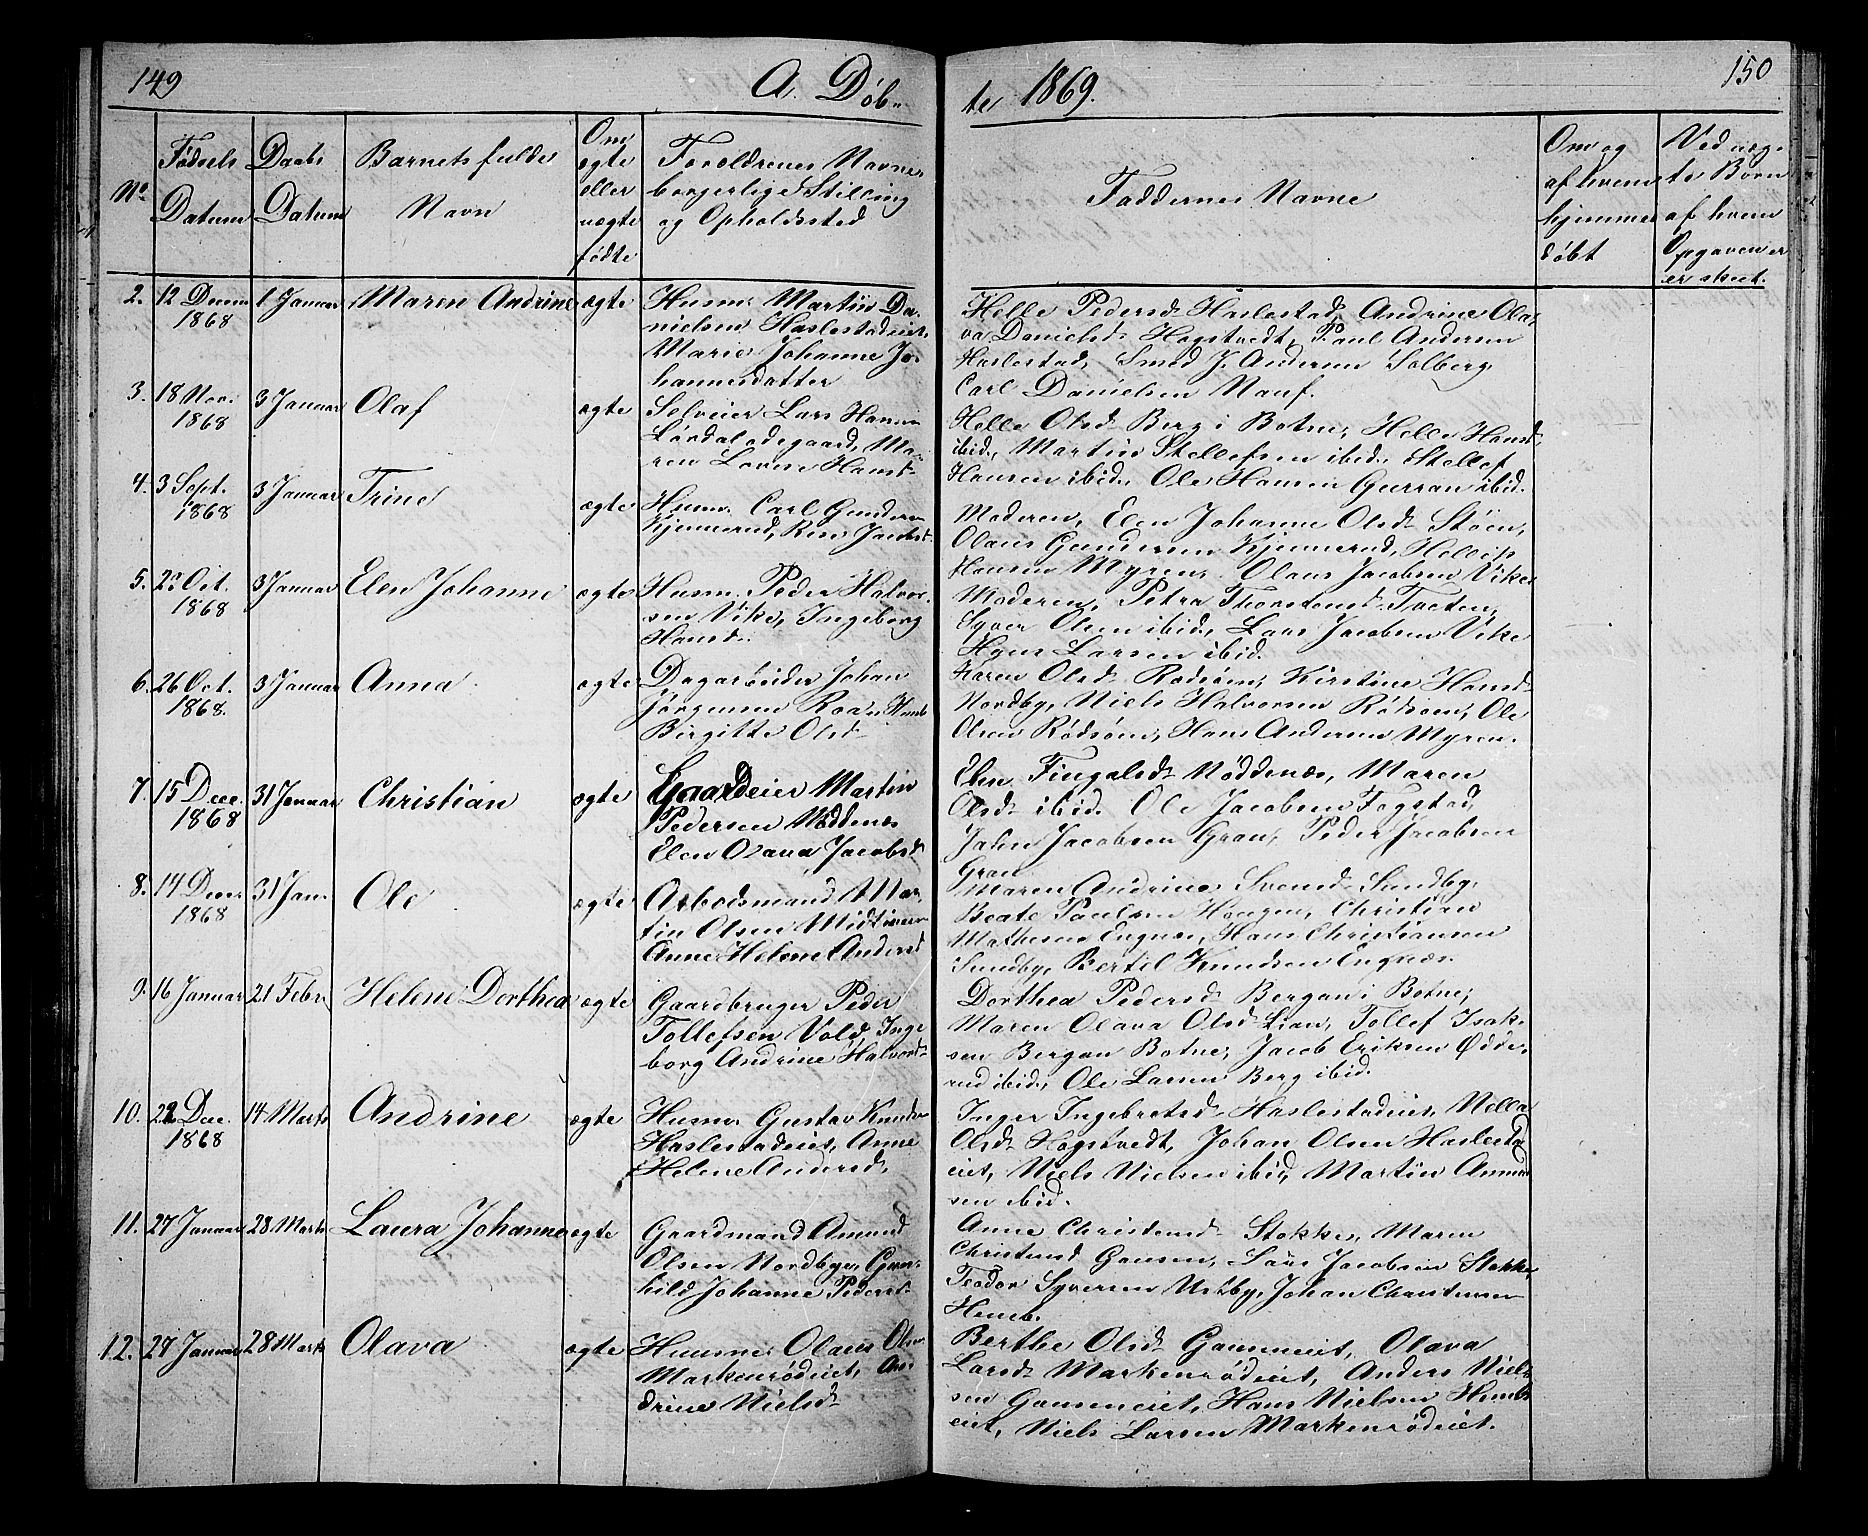 149
A. Døb-
te 1869.
150
No
Fødsels
Datum
Daabs
Datum
Barnets fulde
Navn
Om
ægte
eller
uægte
fødte
Forældrenes Navne,
borgerlige Stilling
og Opholdssted
Faddernes Navne
Om og
af hvem
hjemme
døbt
Ved uæg-
te Børn
af hvem
Opgaven er
er skeet.
2. 12 Decem 1 Januar Maren Andrine ægte
1868
Husm. Martin Da-
nielsen Haslestadeiet,
Marie Johanne Jo-
hannesdatter
Helle Pedersd. Haslestad, Andrine Ola-
va Danielsd. Hogstvedt, Paul Andersen
Haslestad, Smed J. Andersen Solberg,
Carl Danielsen Nauf.
3. 18 Nov. 3 Januar Olaf ægte
1868
Selveier Lars Hansen
Lørdalødegaard, Ma-
ren Lovise Hansd.
Helle Olsd. Berg i Botne, Helle Hansd.
ibid., Martin Stellefsen ibid., Stellef
Hansen ibid., Ole Hansen Gurran ibid.
4. 3 Sept. 3 Januar Trine ægte
1868
Husm. Carl Gundersen
Kjennerud,
Moderen, Elen Johanne Olsd. Støen,
Olaus Gundersen Kjennerud, Hellip
Hansen Myren, Olaus Jacobsen Vike
5. Oct. 3 Januar Elen Johanne ægte
1868
Husm. Peder Halvor-
sen Vike, Ingeborg
Hansd.
Moderen, Petra Thorstensd. Tveten,
Syver Olsen ibid., Lars Jacobsen Vike
Larsen ibid.
6. 26 Oct. 3 Januar Anna ægte
1868.
Dagarbeider Johan
Jørgensen
Birgitte Olsd.
Karen Olsd. Rødsøen, Kirstine Hansd.
Nordby, Niels Halvorsen Rødsøen, Ole
Olsen Rødsøen, Hans Andersen Myren.
7. 15 Dec. 31 Januar Christian ægte
1868
Gaardeier Martin
Pedersen Nøddenes
Elen Olava Jacobsd.
Elen Fingalsd. Nøddenæs, Maren
Olsd. ibid. Ole Jacobsen Fogstad,
John Jacobsen Gran, Peder Jacobsen
Gran
8. 14 Decr. 31 Jan. Ole ægte
1868
Arbedsmand Mar-
tin Olsen
Anne Helene Andersd.
Maren Andrine Svensd. Sundby,
Beate Paulsen Haugen, Christian
Mathesen Engnæs, Hans Christiansen
Sundby, Bertel Knudsen Engnæs.
9. 16 Januar 21 Febr. Helene Dorthea ægte
Gaardbruger Peder
Tollefsen Vold, Inge
borg Andrine Halvorsd.
Dorthea Pedersd. Bergan i Botne,
Maren Olava Olsd. Lian, Tollef Isak-
sen Bergan Botne, Jacob Eriksen Ødde-
rud ibid., Ole Larsen Berg ibid.
10. 22 Dec. 14 Marts Andrine ægte
1868
Husm. Gustav Knudsen
Haslestadeiet, Anne
Helene Andersd.
Inger Ingebretsd. Haslestadeiet, Nella
Olsd. Hogstvedt, Johan Olsen Haslestad
eiet, Niels Nielsen ibid, Martin Amund
sen ibid.
11. 27 Januar 28 Marts Laura Johanne ægte
Gaardmand Amund
Olsen Nordbye, Gun-
hild Johanne Pedersd.
Anne Christensd. Stokke, Maren
Christensd. Gausen, Lars Jacobsen Stokke,
Teodor Syversen Nordby, Johan Christensen
12. 27 Januar 28 Marts Olava ægte
Husm. Olaus Olsen
Markenrødeiet, An-
drine Nielsd.
Berthe Olsd. Gauseneiet, Olava
Larsd. Markenrødeiet, Anders Niel-
sen Gauseneiet, Hans Nielsen
eiet, Niels Larsen Markenrødeiet.